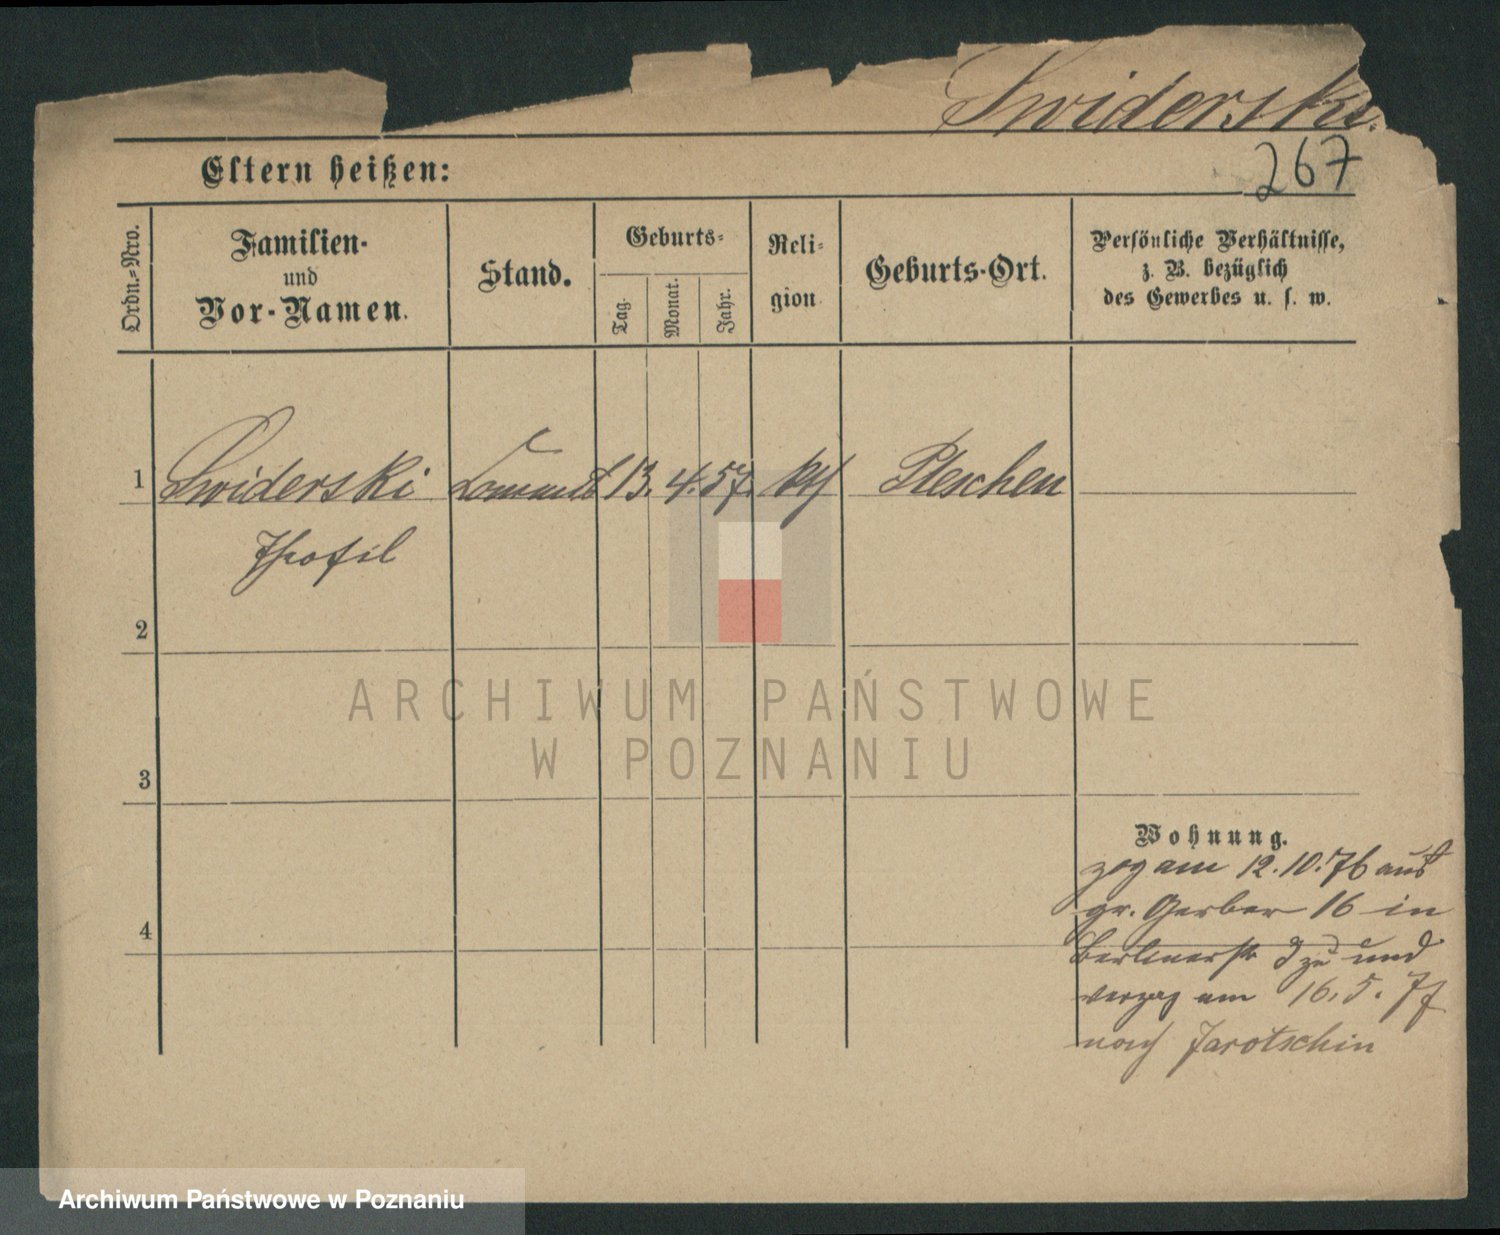 Swiderski.
267
Eltern heißen:
Ordn.-Nro.
Familien-
und
Vor-Namen.
Stand.
Geburts-
Tag.
Monat.
Jahr.
Reli-
gion
Geburts-Ort.
Persönliche Verhältnisse,
z. B. bezüglich
des Gewerbes u. s. w.
1 Swiderski 13. 4. 57. kth Pleschen
Theofil
2
ARCHIWUM PAŃSTWOWE
W POZNANIU
3
Wohnung.
zog am 12.10.76 aus
gr. Gerber 16 in
4
Berlinerstr zu und
verzog am 16.5.77
nach Jarotschin
Archiwum Państwowe w Poznaniu